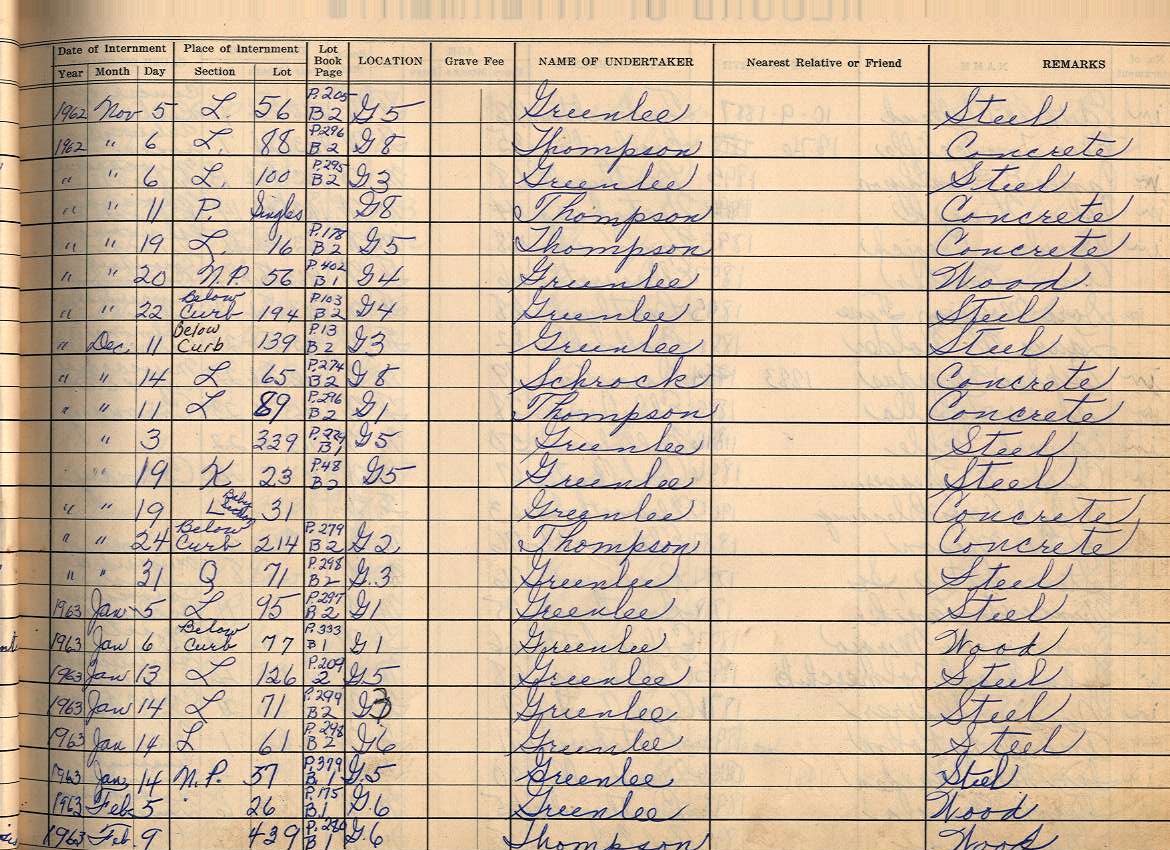 Date of Internment Place of Internment Lot Book Page LOCATION Grave Fee NAME OF UNDERTAKER Nearest Relative or Friend REMARKS
Year Month Day Section Lot
1962 Nov 5 L. 56 P.205 B2 G5 Greenlee Steel
1962 " 6 L. 88 P.296 B2 G8 Thompson Concrete
" " 6 L. 100 P.295 B2 G3 Greenlee Steel
" " 11 P. Singles G8 Thompson Concrete
" " 19 L. 16 P.178 B2 G5 Thompson Concrete
" " 20 N.P. 56 P.402 B1 G4 Greenlee Wood
" " 22 Below Curb 194 P.103 B2 G4 Greenlee Steel
" Dec. 11 Below Curb 139 P.13 B2 G3 Greenlee Steel
" " 14 L 65 P.274 B2 G8 Schrock Concrete
" " 11 L 89 P.296 B2 G1 Thompson Concrete
" 3 339 B1 G5 Greenlee Steel
" 19 K 23 P.48 B2 G5 Greenlee Steel
" " 19 L Baby 31 Greenlee Concrete
" 24 Below Curb 214 P.279 B2 G2 Thompson Concrete
" " 31 Q 71 P.298 B2 G.3 Greenlee Steel
1963 Jan 5 L 95 P.297 B2 G1 Greenlee Steel
1963 Jan 6 Below Curb 77 P.333 B1 G1 Greenlee Wood
1963 Jan 13 L 126 P.209 2 G.5 Greenlee Steel
1963 Jan 14 L 71 P.299 B2 G3 Greenlee Steel
1963 Jan 14 L 61 P.298 B2 G6 Greenlee Steel
1963 Jan 14 N.P. 57 P.379 B1 G.5 Greenlee Steel
1963 Feb. 5 26 P.175 B1 G.6 Greenlee Wood
1963 Feb. 9 439 P.280 B1 G.6 Thompson Wood